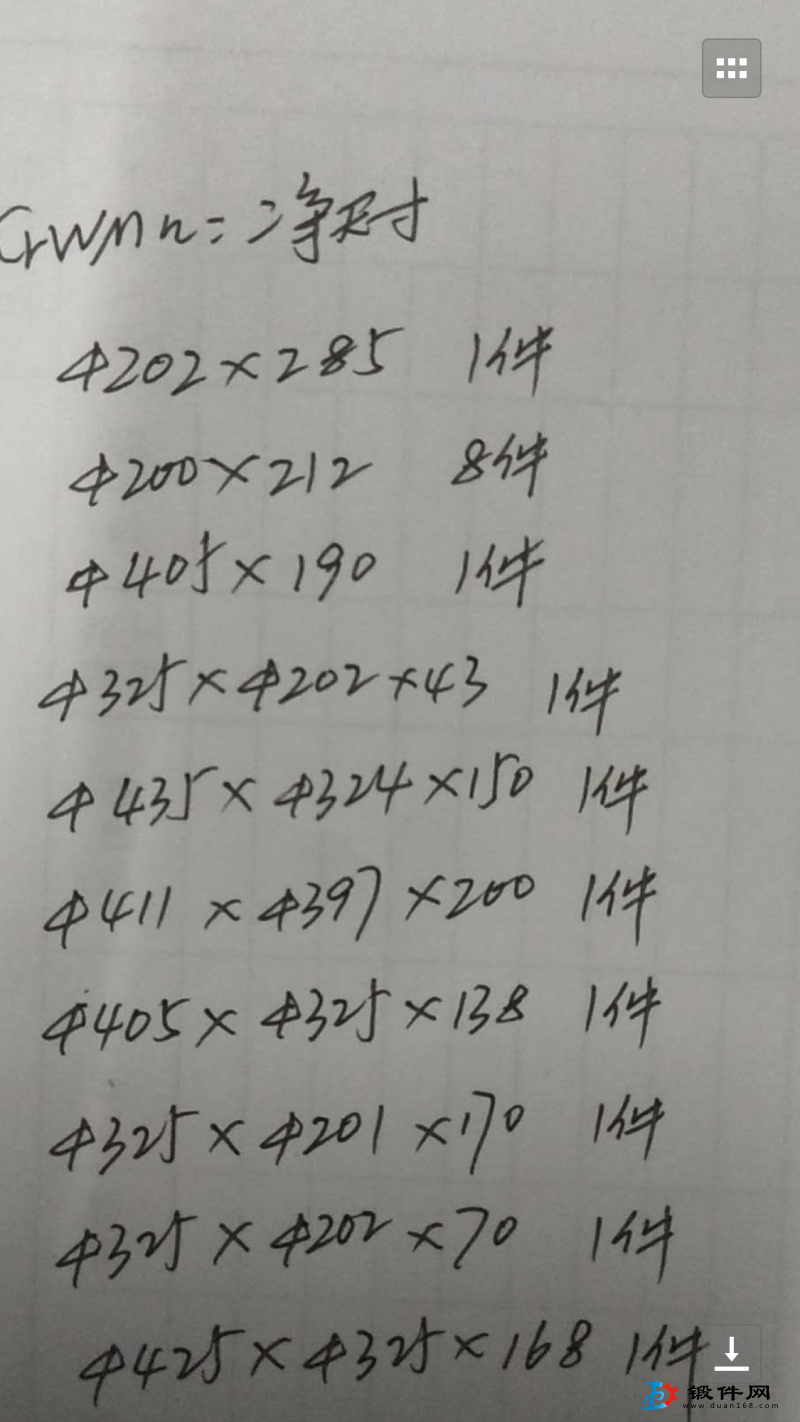 CrWMn=净尺寸
Φ202×285 1件
Φ200×212 8件
Φ405×190 1件
Φ325×Φ202×43 1件
Φ435×Φ324×150 1件
Φ411×Φ397×200 1件
Φ405×Φ325×138 1件
Φ325×Φ201×170 1件
Φ325×Φ202×70 1件
Φ425×Φ325×168 1件
锻件网
www.duan168.com